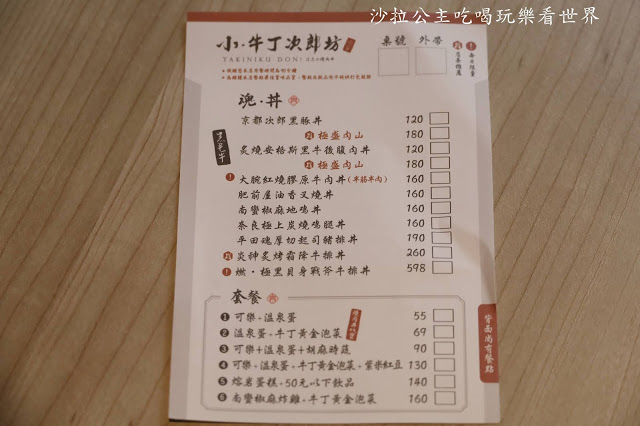 沙拉公主吃喝玩樂看世界
小牛丁次郎坊
YAKINIKU DON!
桌號 外帶
魂·丼
京都次郎黑豚丼 120
極盛肉山 180
炙燒安格斯黑牛後腹肉丼 120
極盛肉山 180
大腕紅燒膠原牛肉丼(半筋半肉) 160
肥前屋油香叉燒丼 160
南蠻椒麻地鳴丼 160
奈良極上炭燒鳴腿丼 160
平田魂厚切起司豬排丼 190
炎神炙烤霜降牛排丼 260
燃·極黑貝身戰斧牛排丼 598
套餐
1 可樂+溫泉蛋 55
2 溫泉蛋+牛丁黃金泡菜 69
3 可樂+溫泉蛋+胡麻時蔬 90
4 可樂+溫泉蛋+牛丁黃金泡菜+紫米紅豆 130
5 熔岩蛋糕+50元以下飲品 140
6 南蠻椒麻炸雞+牛丁黃金泡菜 160
背面尚有餐點